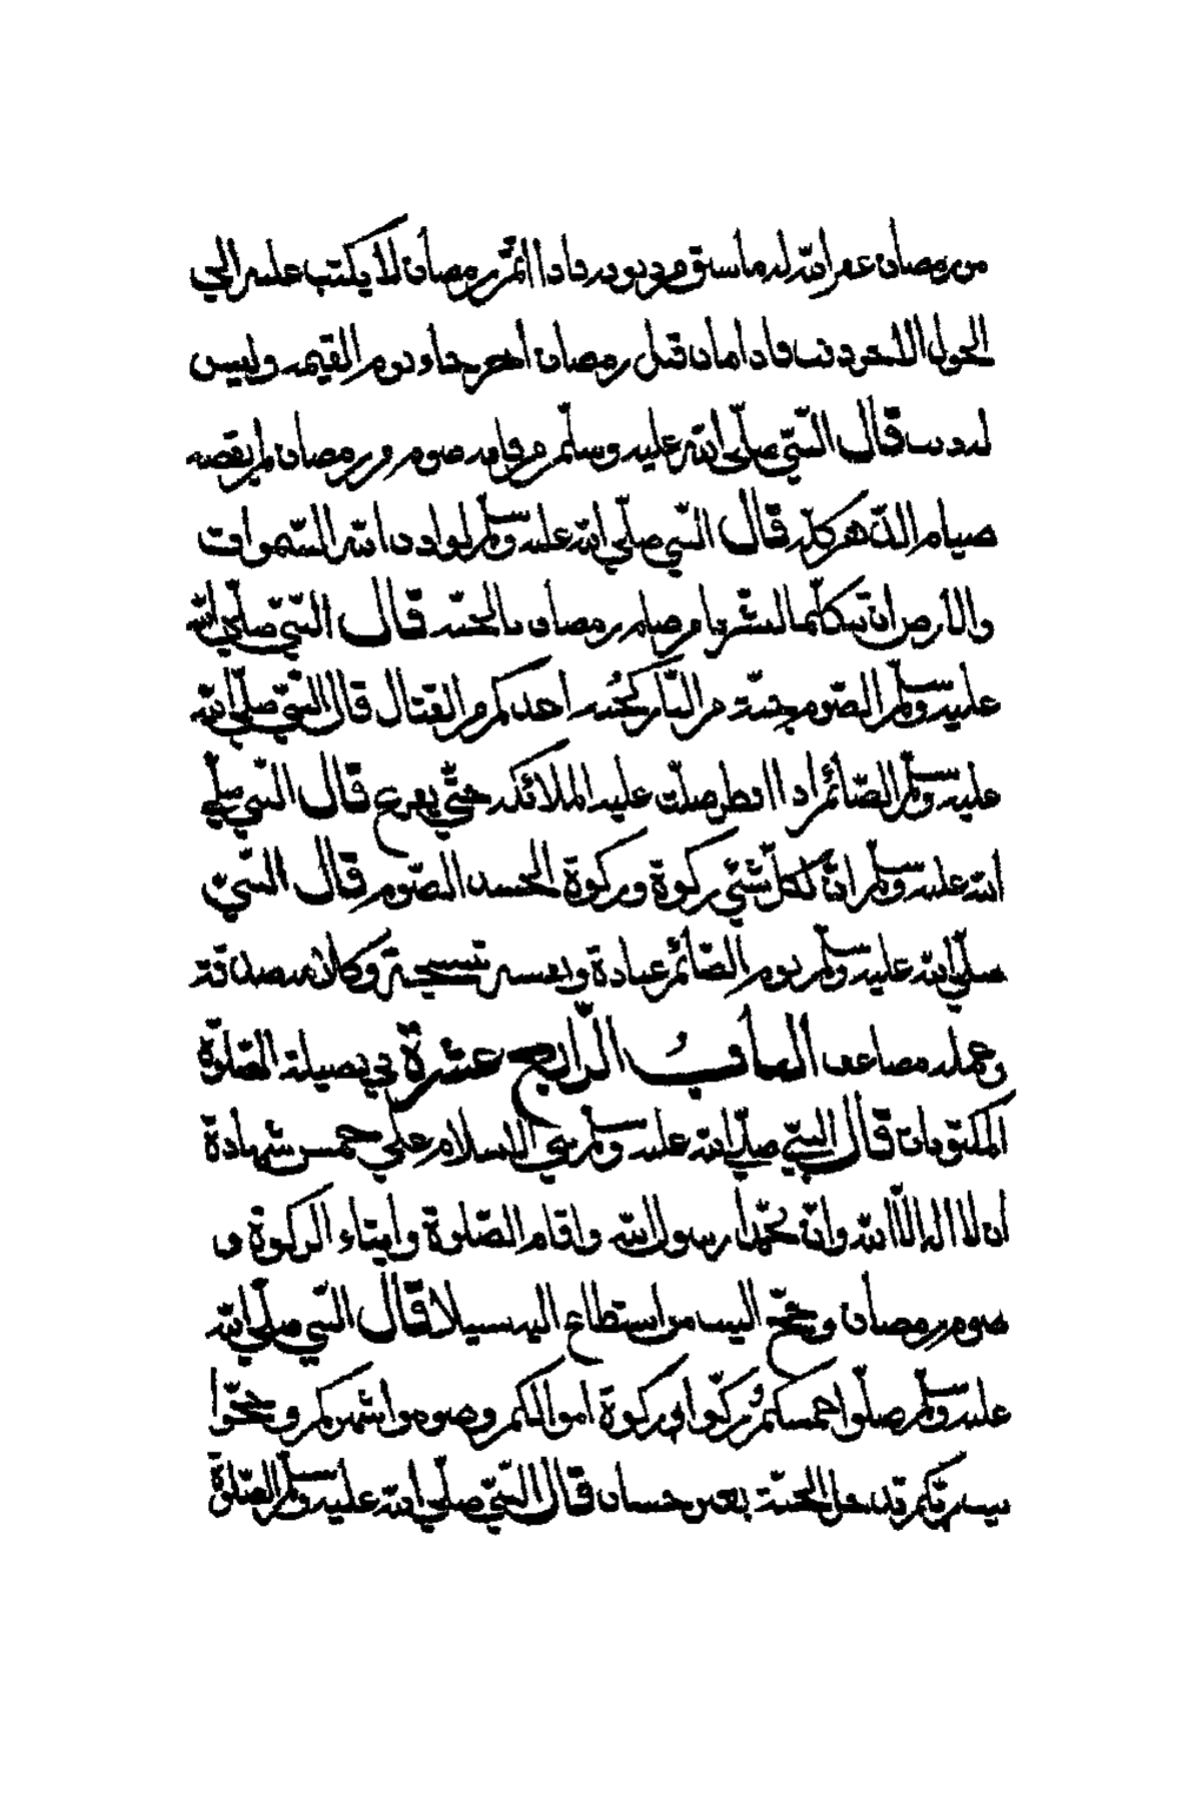 من رمضان غفر الله له ما سبق من ذنوبه فاذا اتمّ رمضان لا يكتب عليه الى
الحول الاخر ذنب فاذا مات قبل رمضان اخر جاء يوم القيمه وليس
له ذنب قال النّبيّ صلّى الله عليه وسلّم من فاته صوم من رمضان لم يقضه
صيام الدّهر كلّه قال النّبي صلّى الله عليه وسلّم لو اذن الله السّموات
والأرض ان تتكلّما لبشّرتا من صام رمضان بالجنّه قال النّبيّ صلّى الله
عليه وسلّم الصّوم جنّة من النّار كجنّه احدكم من القتال قال النّبيّ صلّى الله
عليه وسلّم الصّائم اذا افطر صلّت عليه الملائكه حتّي يفرغ قال النّبي صلّي
الله عليه وسلّم انّ لكلّ شئي زكوة وزكوة الجسد الصّوم قال النّبيّ
صلّي الله عليه وسلّم نوم الصّائم عبادة ونفسه تسبيحة وكلامه صدقة
وعمله مضاعف البابُ الرّابع عشرة في فضيلة الصّلوة
المكتوبات قال النّبيّ صلّى الله عليه وسلّم بني الاسلام علي خمس شهادة
ان لا اله الاّ الله وانّ محمّدا رسول الله واقام الصّلوة وايتاء الزكوة و
صوم رمضان وحجّ البيت من استطاع اليه سبيلا قال النّبي صلّى الله
عليه وسلّم صلّوا خمسكمُ زكّوا زكوة اموالكم وصوموا شهركم وحجّوا
بيت ربّكم تدخل الجنّة بغير حساب قال النّبيّ صلّي الله عليه وسلّم الصّلوة